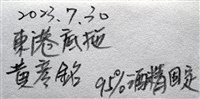 2023.7.30
東港底拖
黃彥銘
95%酒精固定